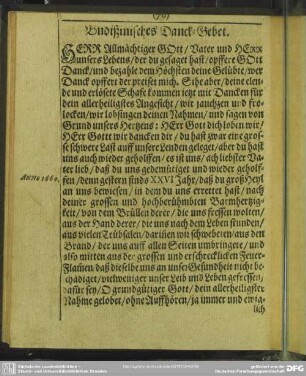 Budißinisches Danck-Gebet.
HERR Allmächtiger GOtt / Vater und HErr
unsers Lebens / der du gesaget hast / opffere GOtt
Danck / und bezahle dem Höchsten deine Gelübte / wer
Danck opffert der preiset mich. Sihe aber / deine elen-
de und erlösete Schafe kommen jetzt mit Dancken für
dein allerheiligstes Angesicht / wir jauchzen und fro-
locken / wir lobsingen deinen Nahmen / und sagen von
Grund unsers Hertzens: HErr Gott dich loben wir /
HErr Gott wir dancken dir / du hast zwar eine gros-
se schwere Last auff unsere Lenden geleget / aber du hast
uns auch wieder geholffen / es ist uns / ach liebster Va-
ter lieb / daß du uns gedemütiget und wieder geholf-
fen / denn gestern sinds XXVI Jahr / daß du groß Heyl
Anno 1660.
an uns bewiesen / in dem du uns errettet hast / nach
deiner grossen und hochberühmbten Barmhertzig-
keit / von dem Brüllen derer / die uns fressen wolten /
aus der Hand derer / die uns nach dem Leben stunden /
aus vielen Trübsalen / darinnen wir schwebeten / aus den
Brand / der uns auff allen Seiten umbringete / und
also mitten aus der grossen und erschrecklichen Feuer-
Flamen daß dieselbe uns an unser Gesundheit nicht be-
schädiget / vielweniger unser Leib und Leben gefressen /
dafür sey / O grundgütiger Gott / dein allerheiligster
Nahme gelobet / ohne Auffhören / ja immer und ewig-
lich